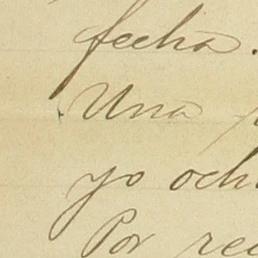 fecha.
Una
yo och
Por rec